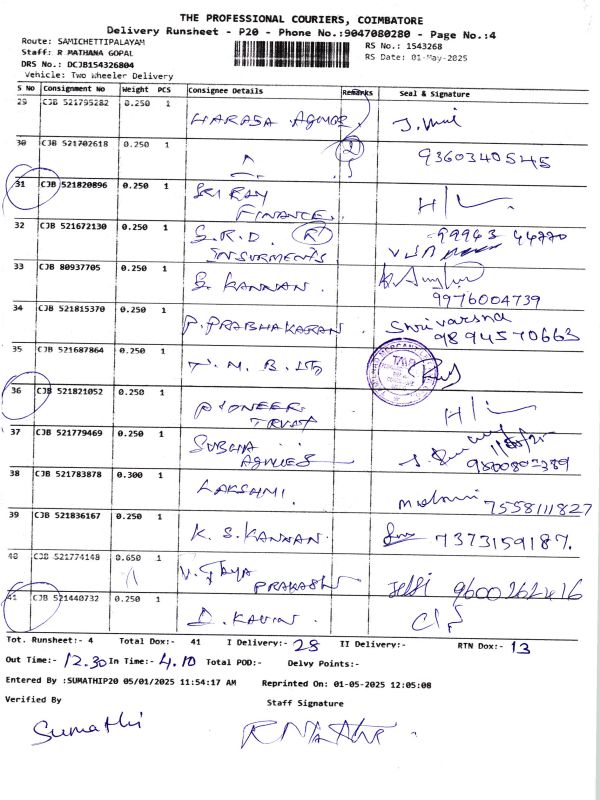 THE PROFESSIONAL COURIERS, COIMBATORE
Delivery Runsheet - P20 - Phone No.:9047080280 - Page No.:4
Route: SAMICHETTIPALAYAM
Staff: R MATHANA GOPAL
RS No.: 1543268
DRS No.: DCJB154326804
RS Date: 01-May-2025
Vehicle: Two Wheeler Delivery
S No Consignment No Weight PCS Consignee Details Remarks Seal & Signature
29 CJB 521795282 0.250 1
30 CJB 521702618 0.250 1 2 9360340545
31 CJB 521820896 0.250 1 SRI RAY FINANCE. H/L
32 CJB 521672130 0.250 1 S.R.D. 99943 44770
33 CJB 80937705 0.250 1 S. KANNAN. 9976004739
34 CJB 521815370 0.250 1 P. PRABHAKARAN. Shrivarsha 9894570663
35 CJB 521687864 0.250 1 T. M. B. LTD
36 CJB 521821052 0.250 1 PIONEER TRUST H/L
37 CJB 521779469 0.250 1 SUBHA
38 CJB 521783878 0.300 1 LAKSHMI. 7558111827
39 CJB 521836167 0.250 1 K. S. KANNAN. 7373159187.
40 CJB 521774148 0.650 1 V. JAYA PRAKASH 9600262416
41 CJB 521440732 0.250 1 D. KAVIN.
Tot. Runsheet:- 4 Total Dox:- 41 I Delivery:- 28 II Delivery:- RTN Dox:- 13
Out Time:- 12.30 In Time:- 4.10 Total POD:- Delvy Points:-
Entered By :SUMATHIP20 05/01/2025 11:54:17 AM Reprinted On: 01-05-2025 12:05:08
Verified By Staff Signature
Sumathi